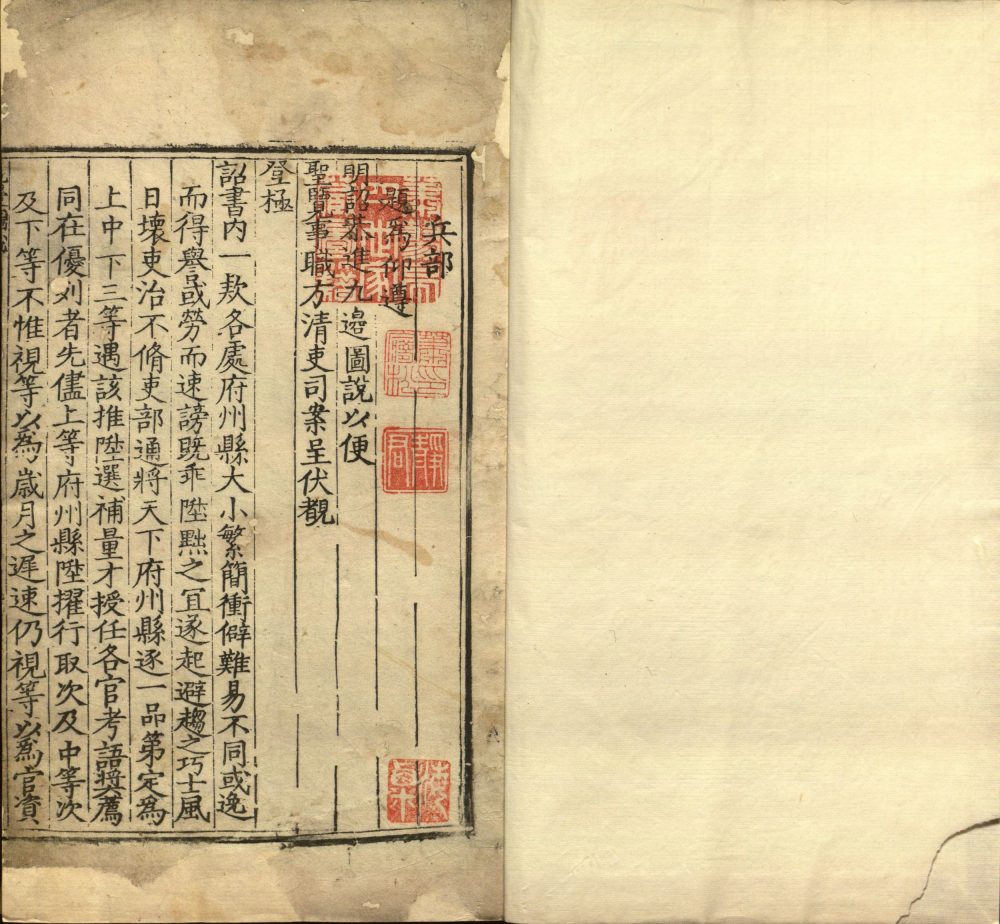 兵部
題為仰遵
明詔恭進九邊圖說以便
聖覽事職方清吏司案呈伏覩
登極
詔書内一款各處府州縣大小繁簡衝僻難易不同或逸
而得譽或勞而速謗既乖陞黜之宜遂起避趨之巧士風
日壞吏治不脩吏部通將天下府州縣逐一品第定為
上中下三等遇該推陞選補量才授任各官考語奬薦
同在優列者先儘上等府州縣陞擢行取次及中等次
及下等不惟視等以為歲月之遲速仍視等以為官資